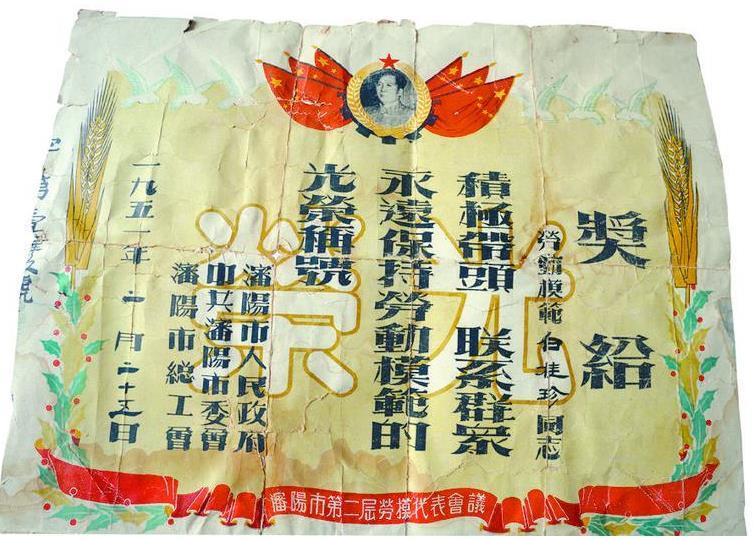 獎給
勞動模範白桂珍同志
積極帶頭 联系群眾
永遠保持勞動模範的
光榮稱號
瀋陽市人民政府
中共瀋陽市委會
瀋陽市總工會
一九五一年二月二十五日
光榮
瀋陽市第二屆勞模代表會議